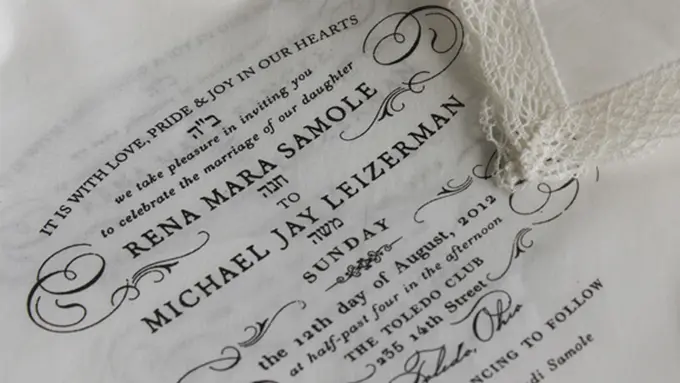 IT IS WITH LOVE, PRIDE & JOY IN OUR HEARTS
ב"ה
we take pleasure in inviting you
to celebrate the marriage of our daughter
RENA MARA SAMOLE
חנה
TO
MICHAEL JAY LEIZERMAN
משה
SUNDAY
the 12th day of August, 2012
at half-past four in the afternoon
THE TOLEDO CLUB
235 14th Street
Toledo, Ohio
NCING TO FOLLOW
di Samole